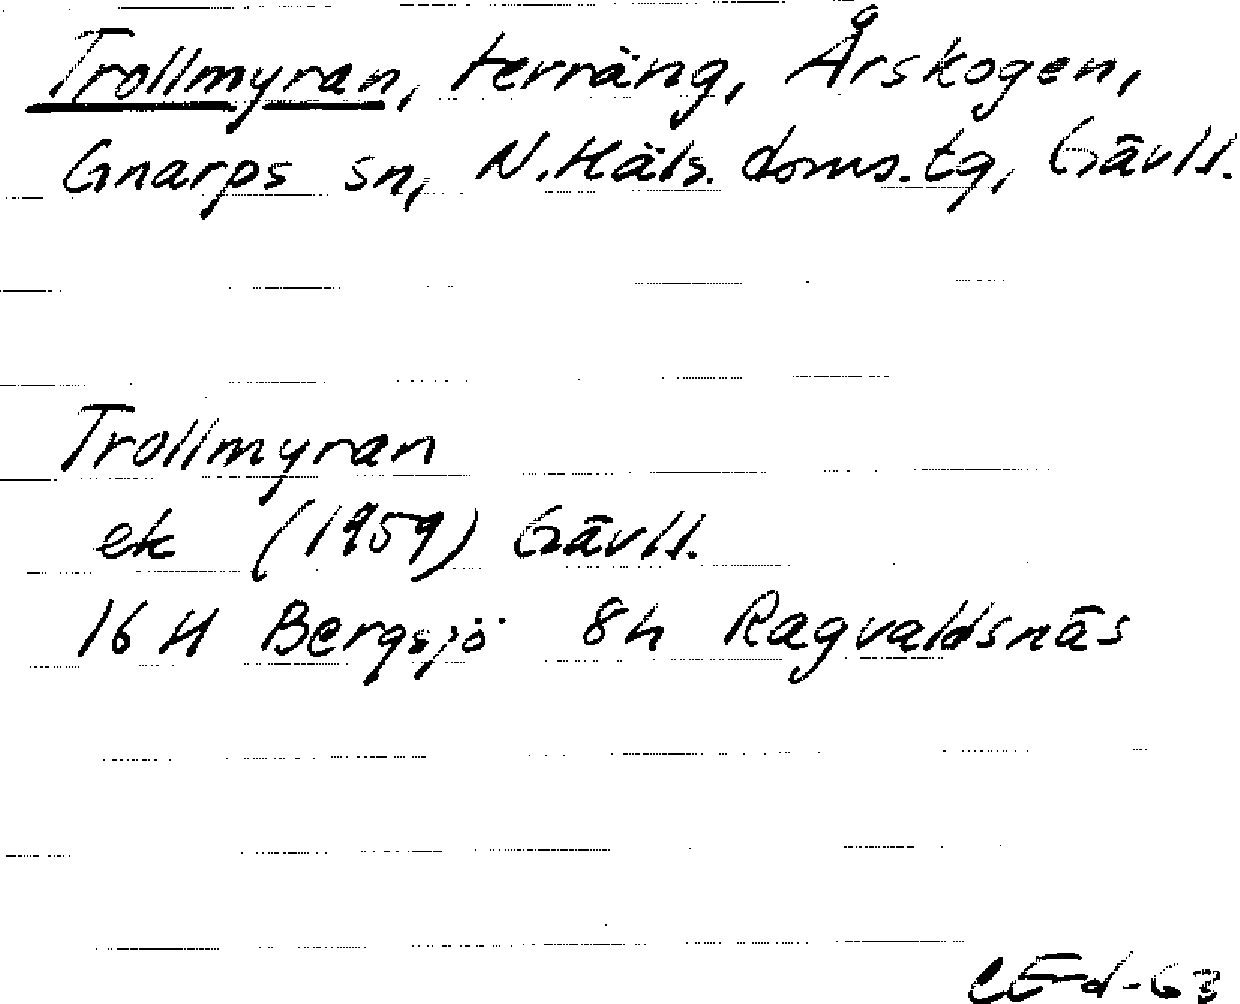 Trollmyran, terräng, Årskogen,
Gnarps sn, N. Häls. doms. tg, Gävll.
Trollmyran
ek (1959) Gävll.
16 H Bergsjö 8h Ragvaldsnäs
CEd-63